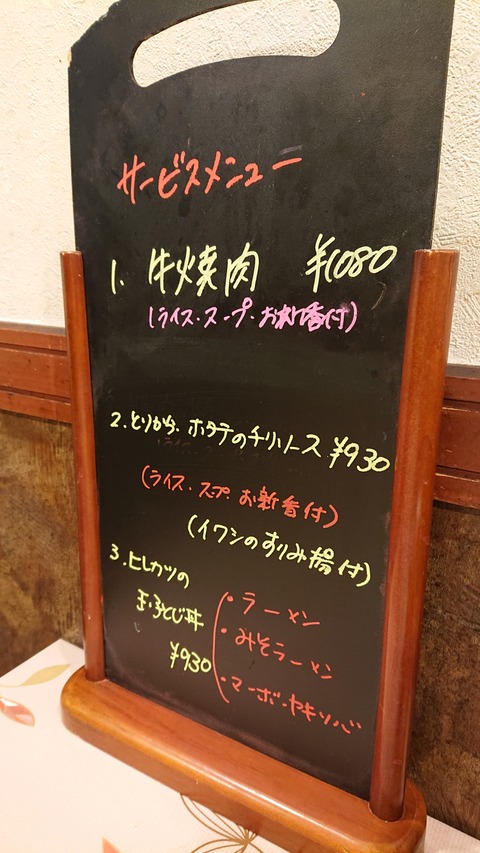 サービスメニュー
1. 牛焼肉 ¥1080
(ライス・スープ・お新香付)
2. とりから、ホタテのチリソース ¥930
(ライス・スープ お新香付)
(イワシのすりみ揚付)
3. ヒレカツの
玉子とじ丼
¥930
・ラーメン
・みそラーメン
・マーボーヤキソバ